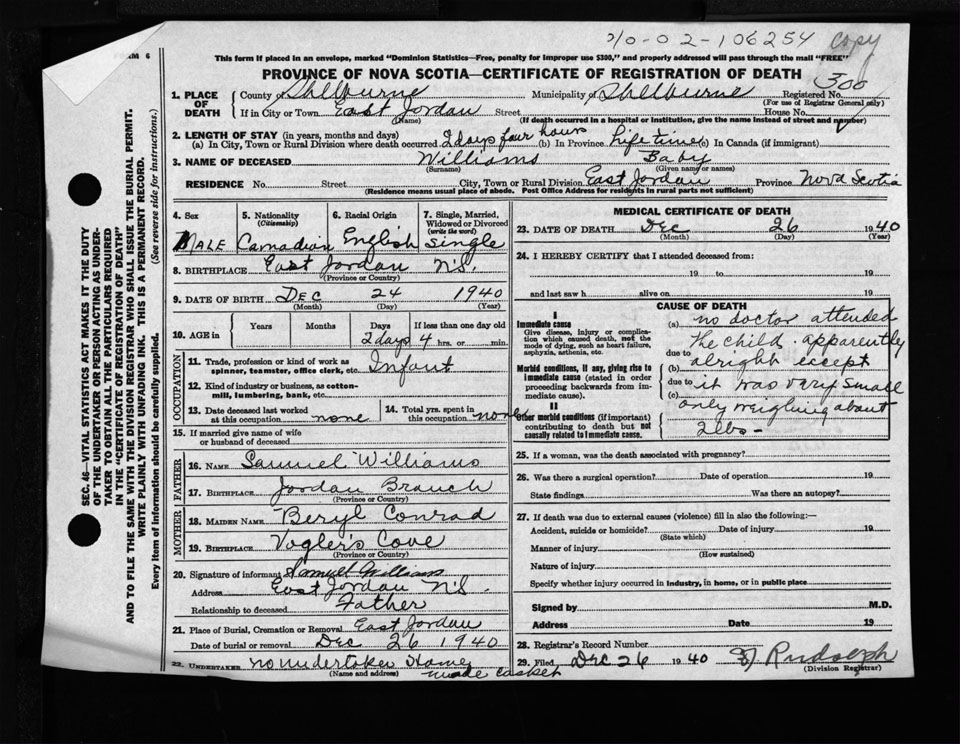 40-02-106254 copy
FORM 6
This form if placed in an envelope, marked "Dominion Statistics—Free, penalty for improper use $300," and properly addressed will pass through the mail "FREE"
PROVINCE OF NOVA SCOTIA—CERTIFICATE OF REGISTRATION OF DEATH
300
1. PLACE OF DEATH County of Shelburne Municipality of Shelburne Registered No.
(For use of Registrar General only)
If in City or Town East Jordan Street House No.
(Name) (If death occurred in a hospital or institution, give the name instead of street and number)
2. LENGTH OF STAY (in years, months and days)
(a) In City, Town or Rural Division where death occurred 2 days four hours (b) In Province Life time (c) In Canada (if immigrant)
3. NAME OF DECEASED Williams Baby
(Surname) (Given name or names)
RESIDENCE No. Street City, Town or Rural Division East Jordan Province Nova Scotia
(Residence means usual place of abode. Post Office Address for residents in rural parts not sufficient)
4. Sex 5. Nationality (Citizenship) 6. Racial Origin 7. Single, Married, Widowed or Divorced (write the word)
MALE Canadian English Single
8. BIRTHPLACE East Jordan N.S.
(Province or Country)
9. DATE OF BIRTH DEC 24 1940
(Month) (Day) (Year)
10. AGE in Years Months Days If less than one day old
2 days 4 hrs. or min.
OCCUPATION
11. Trade, profession or kind of work as spinner, teamster, office clerk, etc. Infant
12. Kind of industry or business, as cotton-mill, lumbering, bank, etc.
13. Date deceased last worked at this occupation none 14. Total yrs. spent in this occupation none
15. If married give name of wife or husband of deceased
FATHER
16. NAME Samuel Williams
17. BIRTHPLACE Jordan Branch
(Province or Country)
MOTHER
18. MAIDEN NAME Beryl Conrad
19. BIRTHPLACE Vogler's Cove
(Province or Country)
20. Signature of informant Samuel Williams
Address East Jordan N.S.
Relationship to deceased Father
21. Place of Burial, Cremation or Removal East Jordan
Date of burial or removal Dec 26 1940
22. UNDERTAKER no undertaker Home
(Name and address) made casket
MEDICAL CERTIFICATE OF DEATH
23. DATE OF DEATH Dec 26 1940
(Month) (Day) (Year)
24. I HEREBY CERTIFY that I attended deceased from:
19 to 19
and last saw h alive on 19
CAUSE OF DEATH
I
Immediate cause
Give disease, injury or complication which caused death, not the mode of dying, such as heart failure, asphyxia, asthenia, etc.
Morbid conditions, if any, giving rise to immediate cause (stated in order proceeding backwards from immediate cause).
II
Other morbid conditions (if important) contributing to death but not causally related to immediate cause.
(a) no doctor attended
the child. apparently
due to
(b) alright except
due to
(c) it was very small
only weighing about
2 lbs-
25. If a woman, was the death associated with pregnancy?
26. Was there a surgical operation? Date of operation 19
State findings Was there an autopsy?
27. If death was due to external causes (violence) fill in also the following:—
Accident, suicide or homicide? Date of injury 19
(State which)
Manner of injury
(How sustained)
Nature of injury
Specify whether injury occurred in industry, in home, or in public place
Signed by M.D.
Address Date 19
28. Registrar's Record Number
29. Filed Dec 26 1940 Rudolph
(Division Registrar)
SEC. 46—VITAL STATISTICS ACT MAKES IT THE DUTY
OF THE UNDERTAKER OR PERSON ACTING AS UNDER-
TAKER TO OBTAIN ALL THE PARTICULARS REQUIRED
IN THE "CERTIFICATE OF REGISTRATION OF DEATH"
AND TO FILE THE SAME WITH THE DIVISION REGISTRAR WHO SHALL ISSUE THE BURIAL PERMIT.
WRITE PLAINLY WITH UNFADING INK. THIS IS A PERMANENT RECORD.
Every item of information should be carefully supplied. (See reverse side for instructions.)